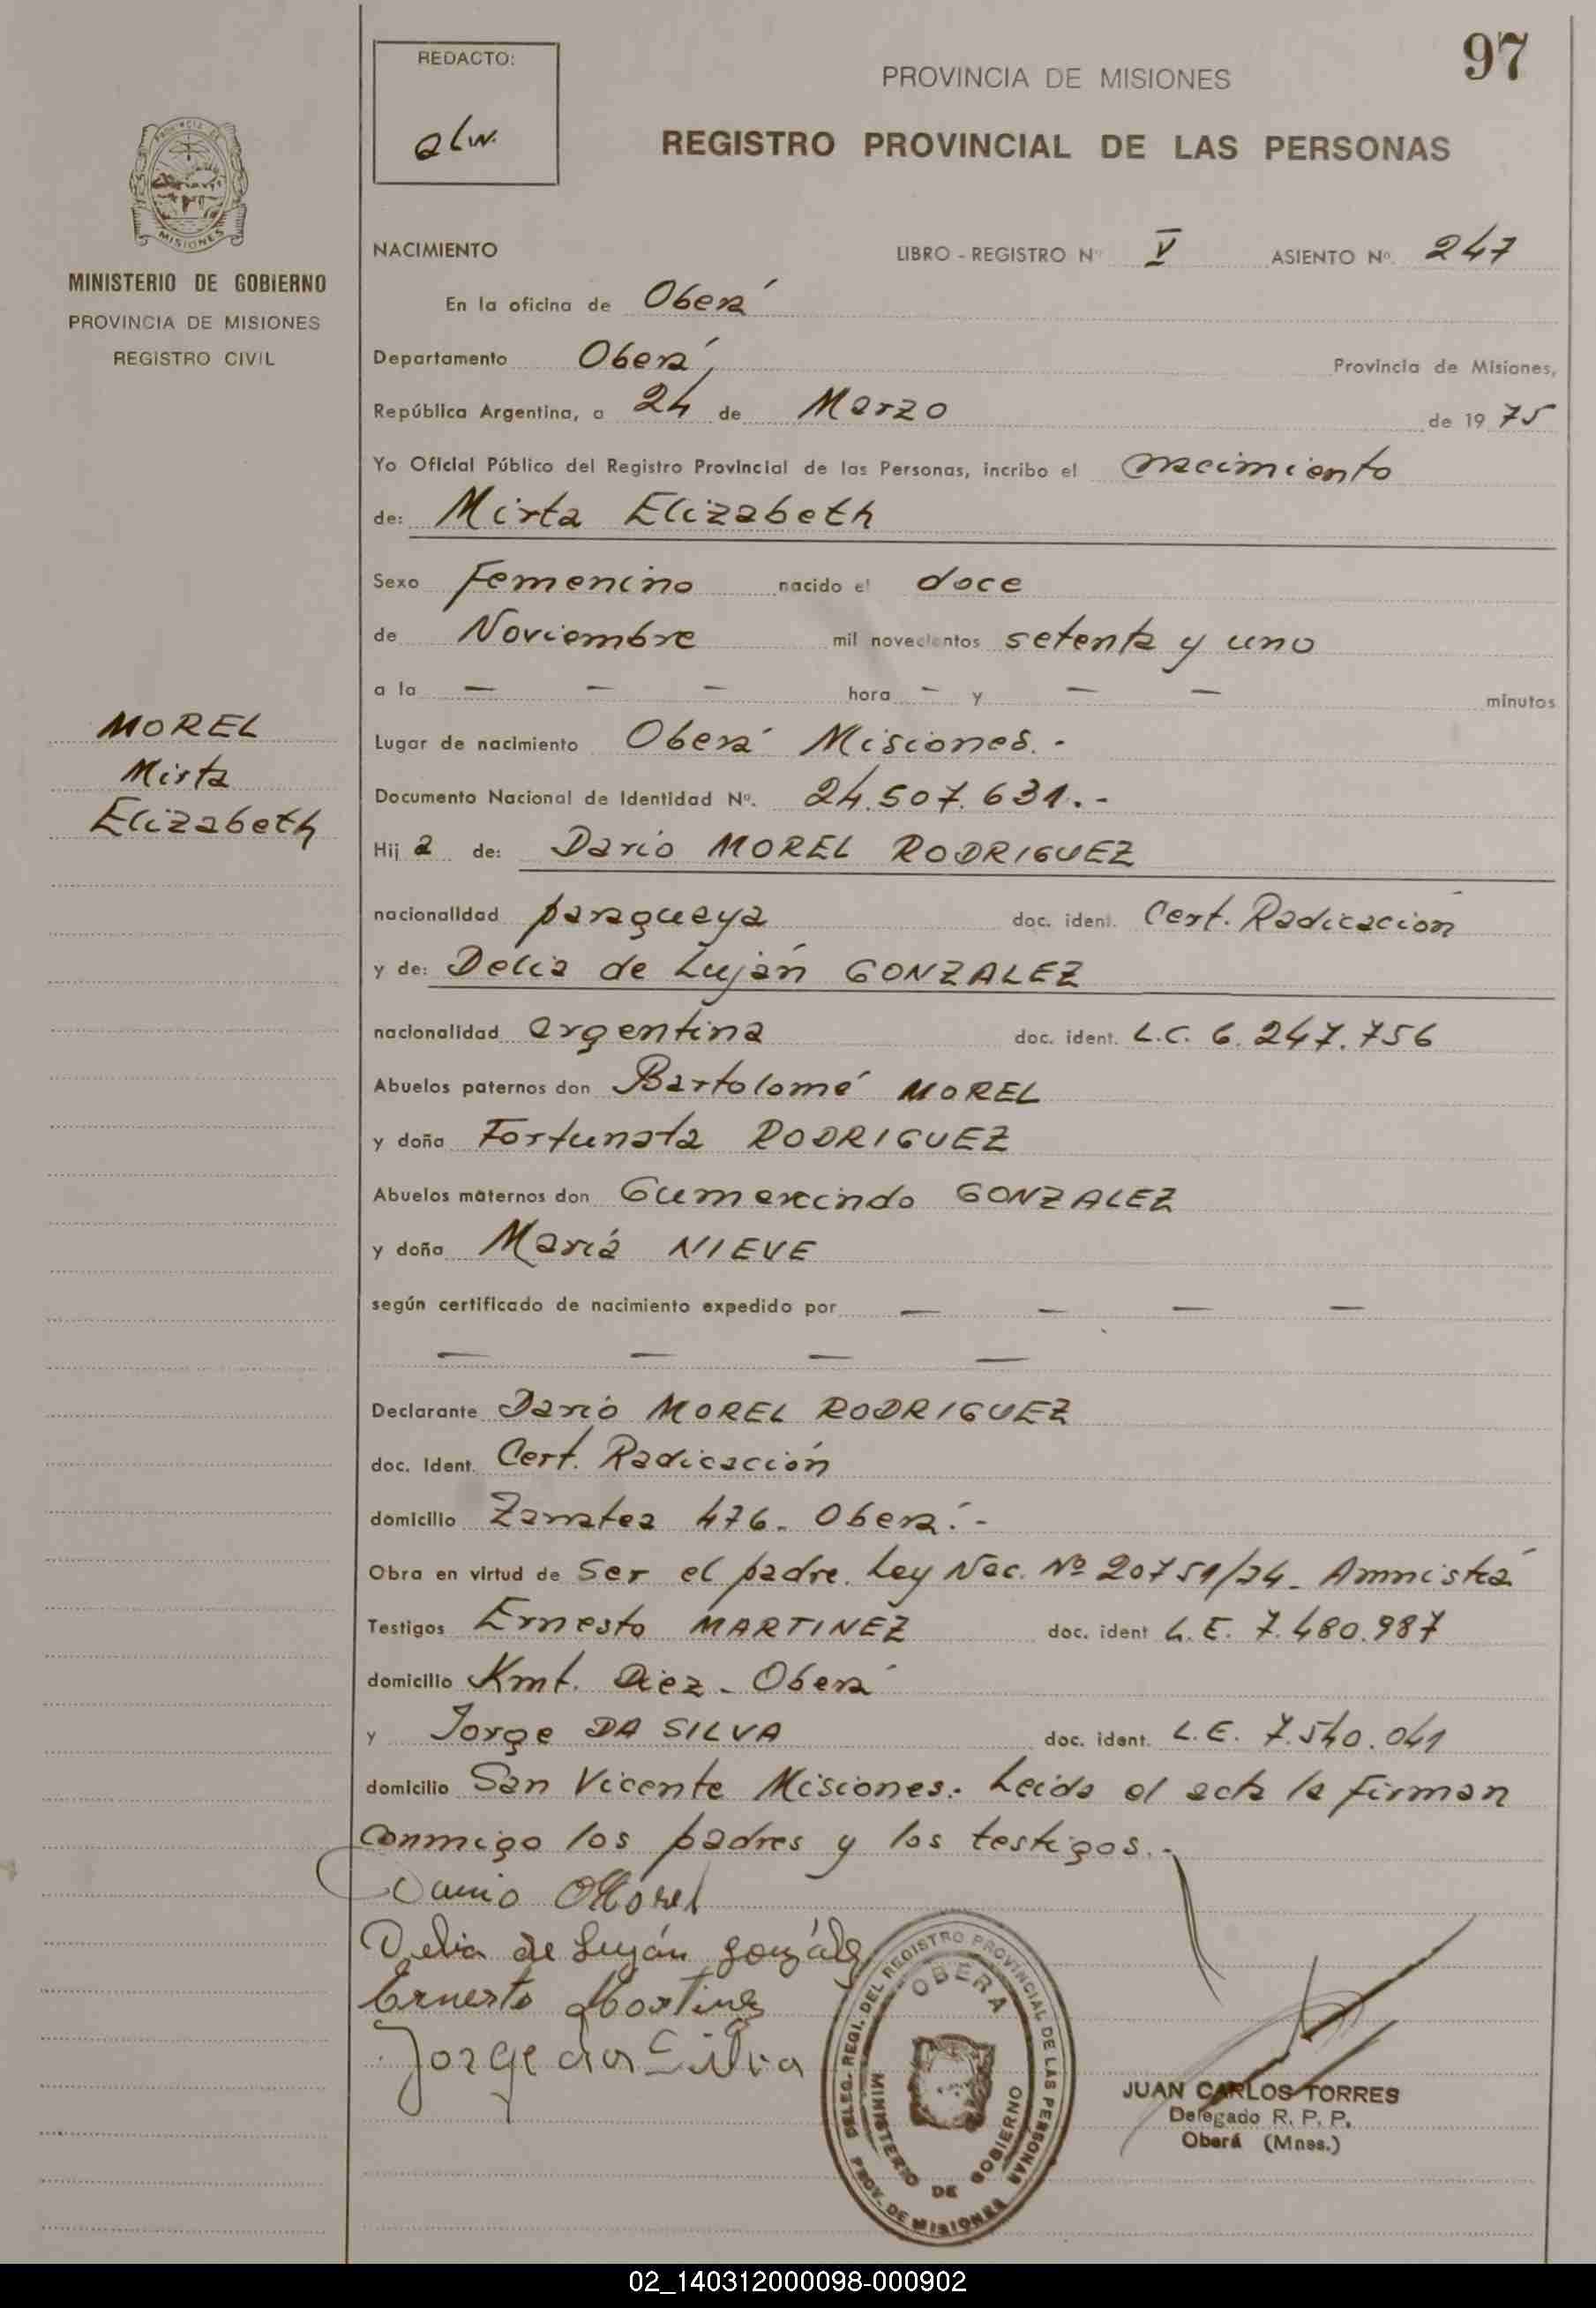 97
REDACTO:
alw.
PROVINCIA DE MISIONES
REGISTRO PROVINCIAL DE LAS PERSONAS
PROVINCIA DE
MISIONES
MINISTERIO DE GOBIERNO
PROVINCIA DE MISIONES
REGISTRO CIVIL
MOREL
Mirta
Elizabeth
NACIMIENTO LIBRO - REGISTRO Nº V ASIENTO Nº 247
En la oficina de Oberá
Departamento Oberá Provincia de Misiones,
República Argentina, a 24 de Marzo de 19 75
Yo Oficial Público del Registro Provincial de las Personas, incribo el nacimiento
de: Mirta Elizabeth
Sexo Femenino nacido el doce
de Noviembre mil novecientos setenta y uno
a la — — — hora - y — — minutos
Lugar de nacimiento Oberá Misiones.-
Documento Nacional de Identidad Nº. 24.507.631.-
Hij a de: Dario MOREL RODRIGUEZ
nacionalidad paraguaya doc. ident. Cert. Radicación
y de: Delia de Luján GONZALEZ
nacionalidad argentina doc. ident. L.C. 6.247.756
Abuelos paternos don Bartolomé MOREL
y doña Fortunata RODRIGUEZ
Abuelos maternos don Gumercindo GONZALEZ
y doña María NIEVE
según certificado de nacimiento expedido por — — — —
— — — —
Declarante Dario MOREL RODRIGUEZ
doc. Ident. Cert. Radicación
domicilio 476. Oberá.-
Obra en virtud de Ser el padre. Ley Nac. Nº 20751/74- Amnistía
Testigos Ernesto MARTINEZ doc. ident L.E. 7.480.987
domicilio Kmt. Diez - Oberá
y Jorge DA SILVA doc. ident. L.E. 7.540.041
domicilio San Vicente Misiones.- Leida el acta la firman
conmigo los padres y los testigos.-
Dario Morel
Delia de Luján González
Ernesto Martinez
Jorge da Silva
DELEG. REGI. DEL REGISTRO PROVINCIAL DE LAS PERSONAS
OBERA
MINISTERIO DE GOBIERNO
PROV. DE MISIONES
JUAN CARLOS TORRES
Delegado R. P. P.
Oberá (Mnes.)
02_140312000098-000902